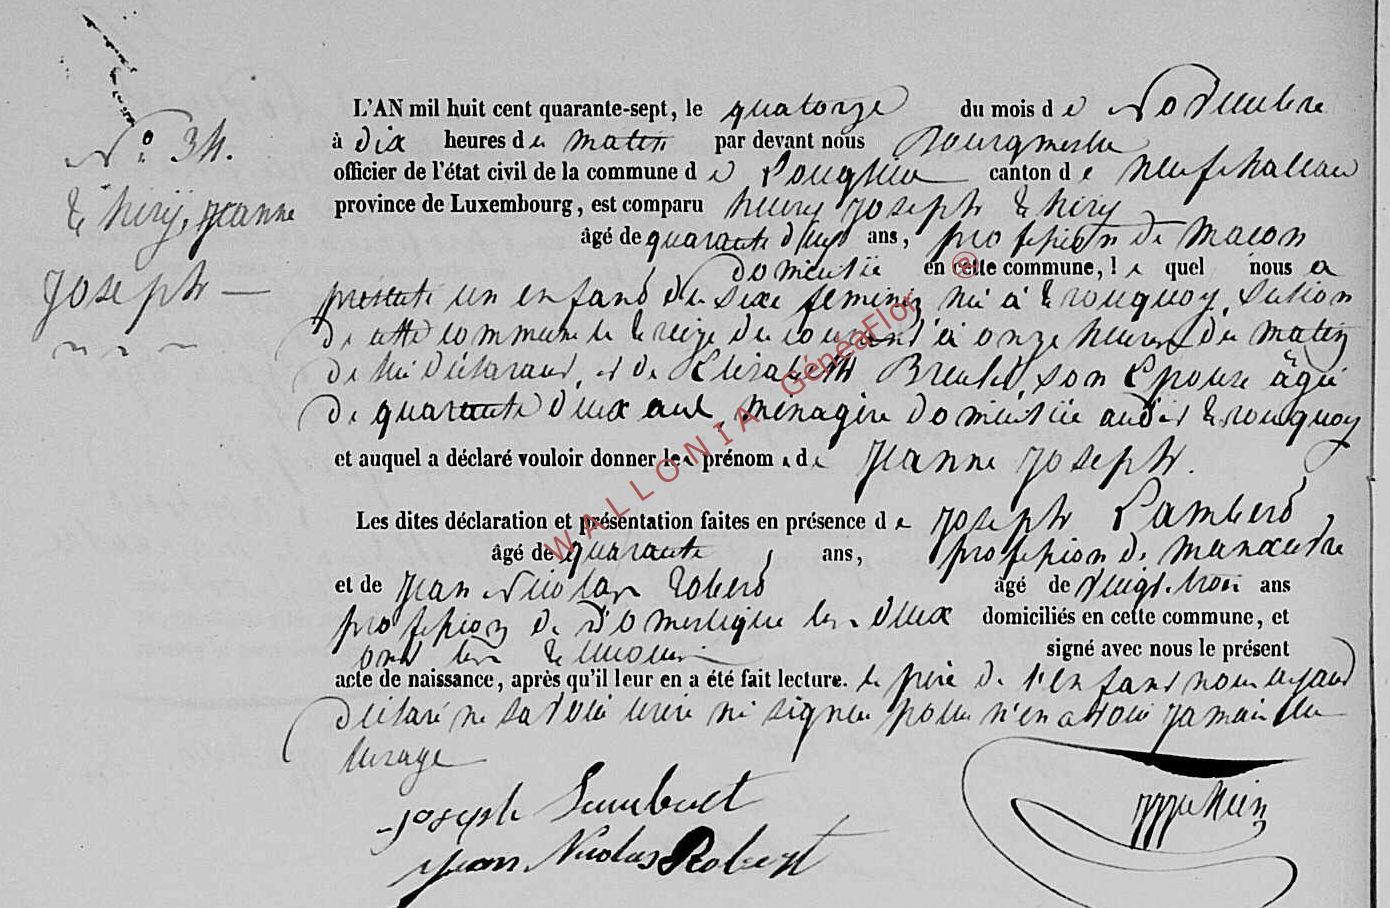 N.° 34.
Thiry, Jeanne
Joseph
L'AN mil huit cent quarante-sept, le quatorze du mois de Novembre
à dix heures du matin par devant nous Bourgmestre
officier de l'état civil de la commune de Longlier canton de neufchateau
province de Luxembourg, est comparu henry Joseph Thiry
âgé de quarante deux ans, profession de macon
domicilié en cette commune, le quel nous a
présenté un enfant du sixe feminin né à tronquoy section
de cette commune le treize du courant à onze heures du matin
de lui déclarant, et de Elisabeth son Epouse âgée
de quarante deux ans, ménagère domiciliée audit tronquoy
et auquel a déclaré vouloir donner les prénoms de Jeanne Joseph.
Les dites déclaration et présentation faites en présence de Joseph Lambert
âgé de quarante ans, profession de manœuvre
et de Jean Nicolas Robert âgé de vingt-trois ans
profession de Domestique les deux domiciliés en cette commune, et
ont les témoins signé avec nous le présent
acte de naissance, après qu'il leur en a été fait lecture. le père de l'enfant nous ayant
déclaré ne savoir écrire ni signer pour n'en avoir jamais eu
lusage
Joseph Lambert
Jean Nicolas Robert
WALLONIA GénéaFlor ®